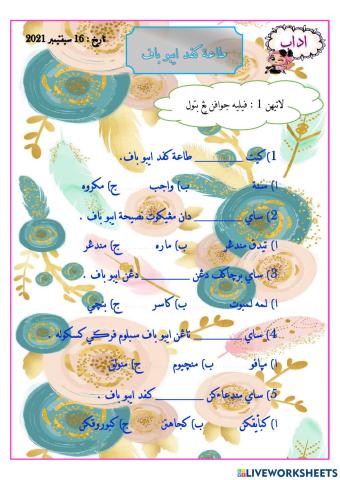 اداب
تاريخ : 16 سڤتيمبر 2021
طاعة کڤد ايبو باڤ
لاتيهن 1 : ڤيليه جواڤن يڠ بتول
1) کيت ________ طاعة کڤد ايبو باڤ.
ا) سنة ب) واجب ج) مکروه
2) ساي ________ دان مڠيکوت نصيحة ايبو باڤ .
ا) تيدق مندڠر ب) ماره ج) مندڠر
3) ساي برچاکڤ دڠن ________ دڠن ايبو باڤ .
ا) لمه لمبوت ب) کاسر ج) بنچي
4) ساي ________ تاڠن ايبو باڤ سبلوم ڤرݢي کسکوله .
ا) ب) منچيوم ج) منولق
5) ساي مندعاءکن ________ کڤد ايبو باڤ .
ا) کبأيقکن ب) کجاهتن ج) کبوروقکن
LIVEWORKSHEETS